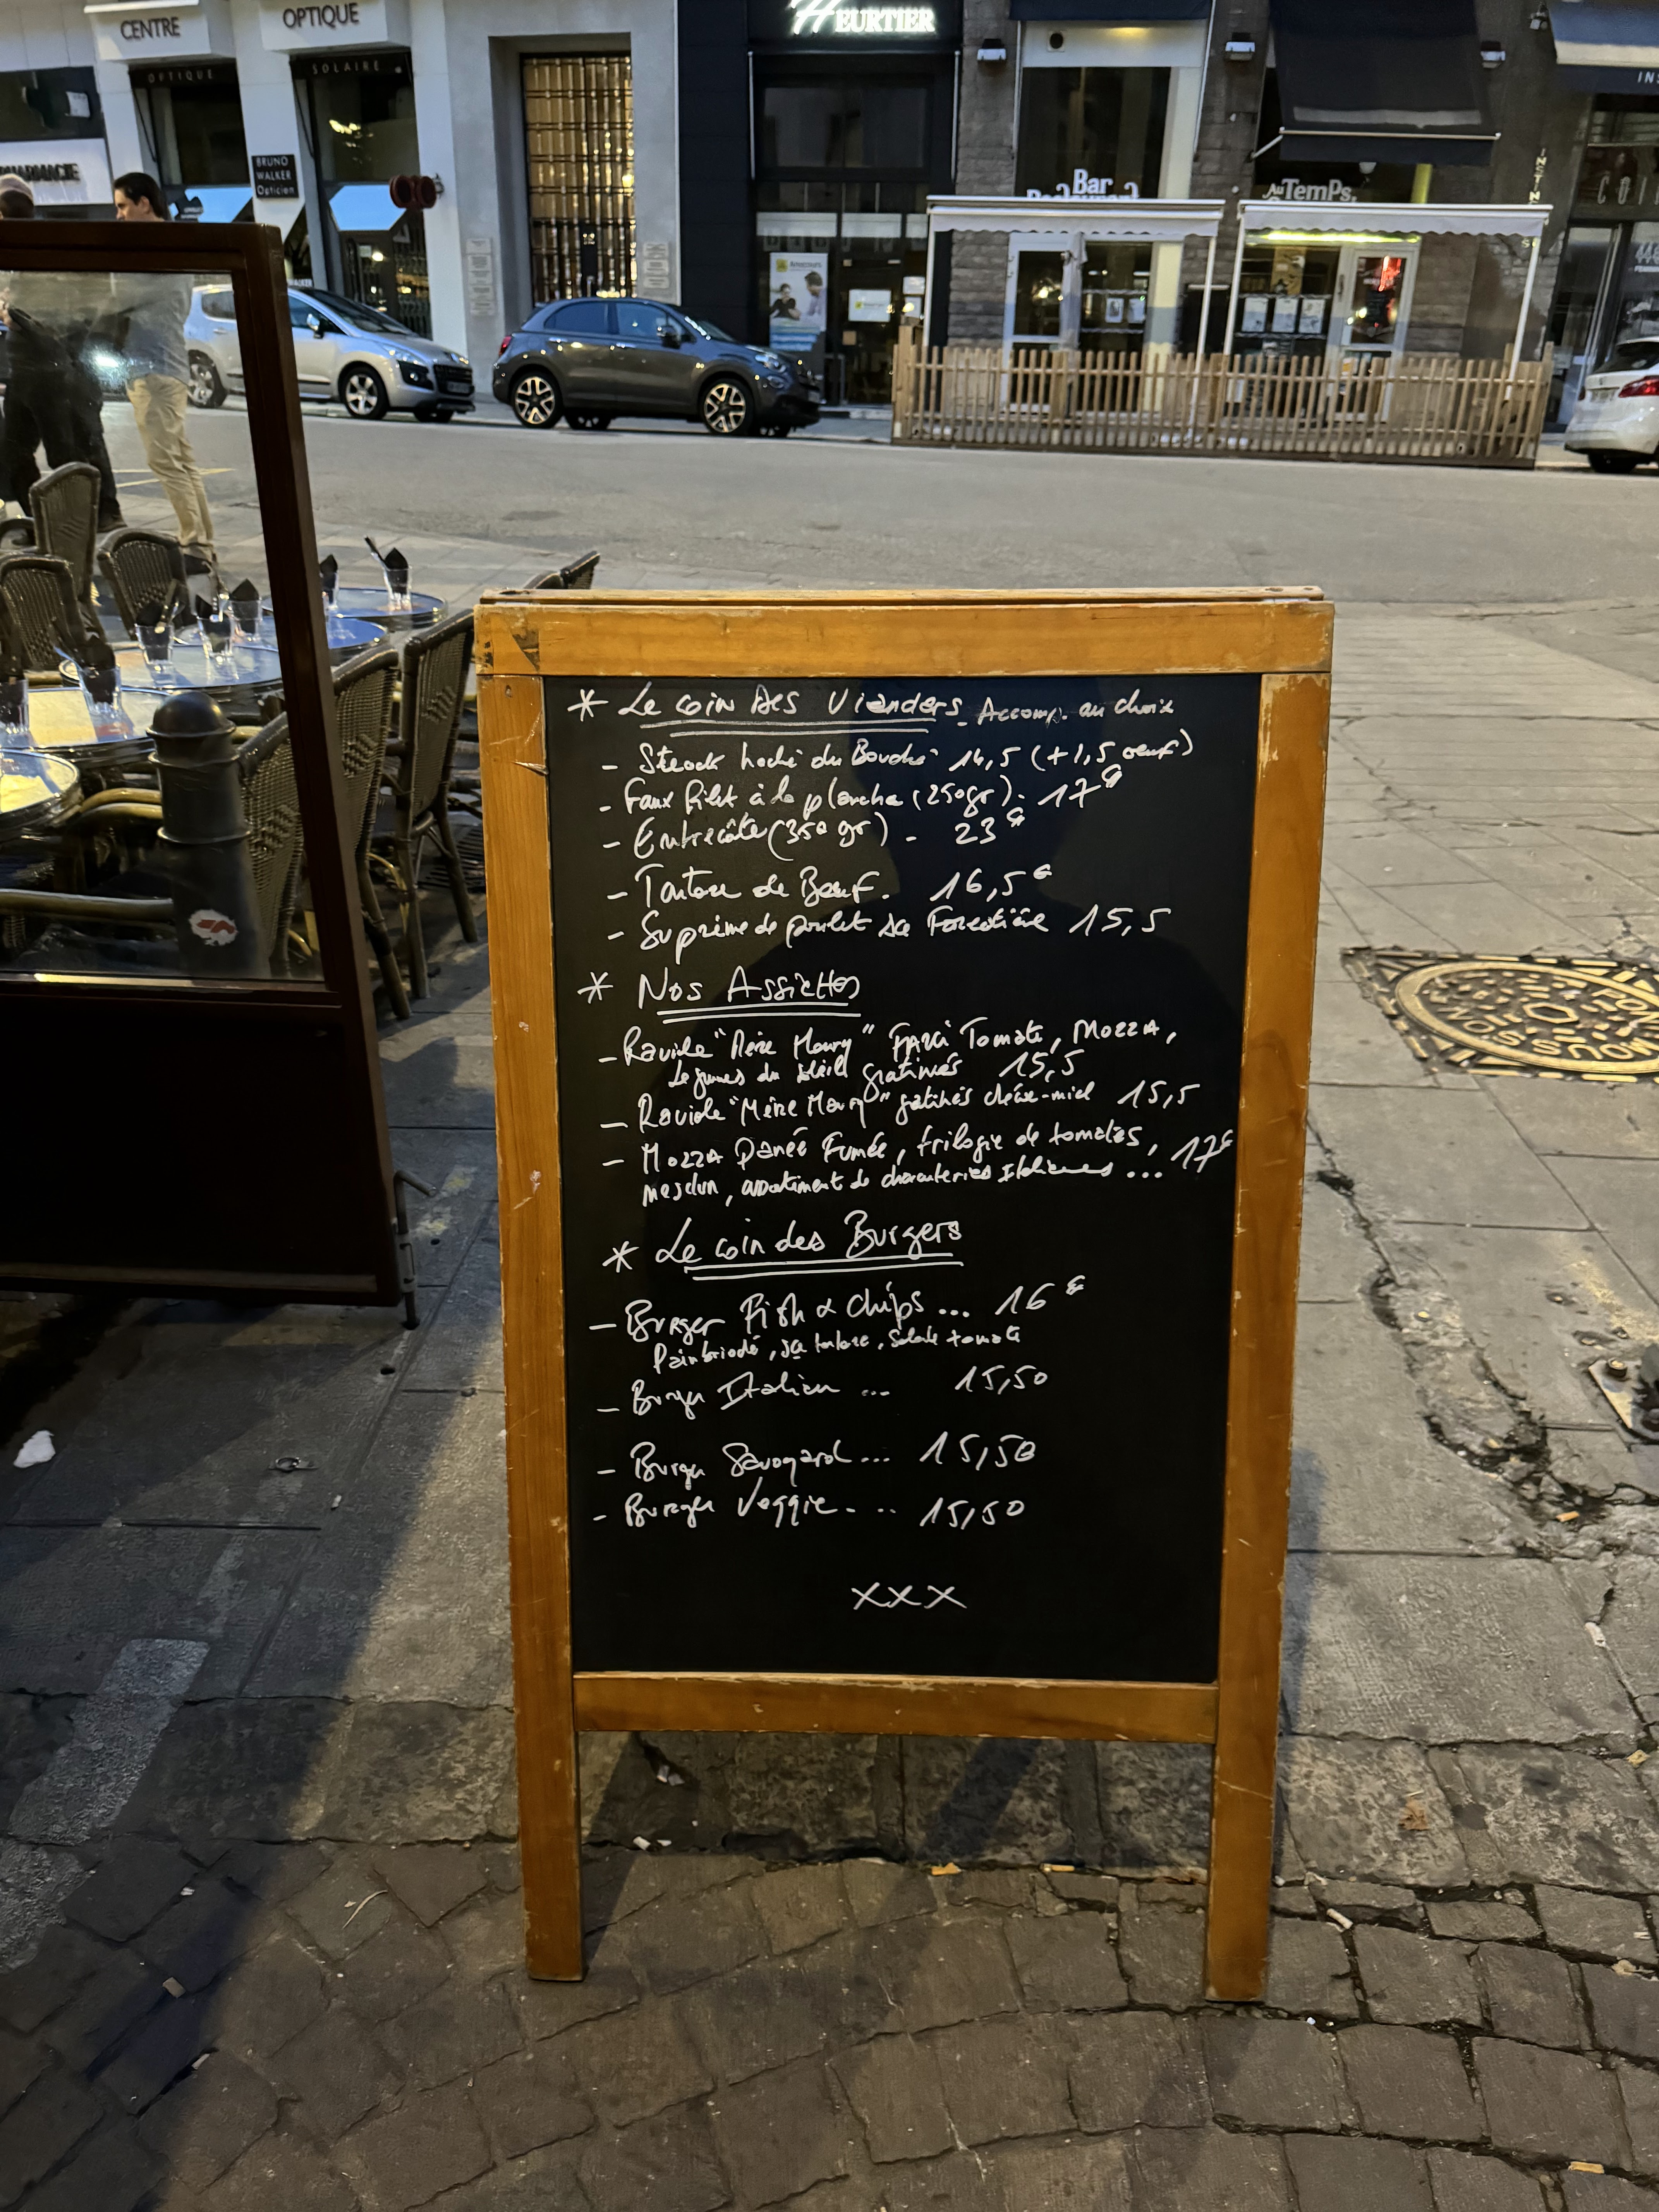 CENTRE
OPTIQUE
HEURTIER
OPTIQUE
SOLAIRE
PHARMACIE
BRUNO
WALKER
Opticien
Bar
Restaurant
Au TemPs
* Le coin des Vianders. Accomp. au choix
- Steack haché du Bouché 14,5 (+1,5 oeuf)
- Faux filet à la plancha (250gr). 17€
- Entrecôte (350 gr) - 23€
- Tartare de Boeuf. 16,5€
- Suprême de poulet sce Forestière 15,5
* Nos Assiettes
- Raviole "Mère Maury" FARCi Tomate, MOZZA,
Legumes du soleil gratinés 15,5
- Raviole "Mère Maury" gratinés chèvre-miel 15,5
- MOZZA Panée Fumée, trilogie de tomates,
mesclun, assortiment de charcuteries Italiennes ... 17€
* Le coin des Burgers
- Burger Fish & Chips ... 16€
Pain briodé, sce tartare, Salade tomate
- Burger Italien ... 15,50
- Burger Savoyard ... 15,50
- Burger Veggie. .. 15,50
XXX